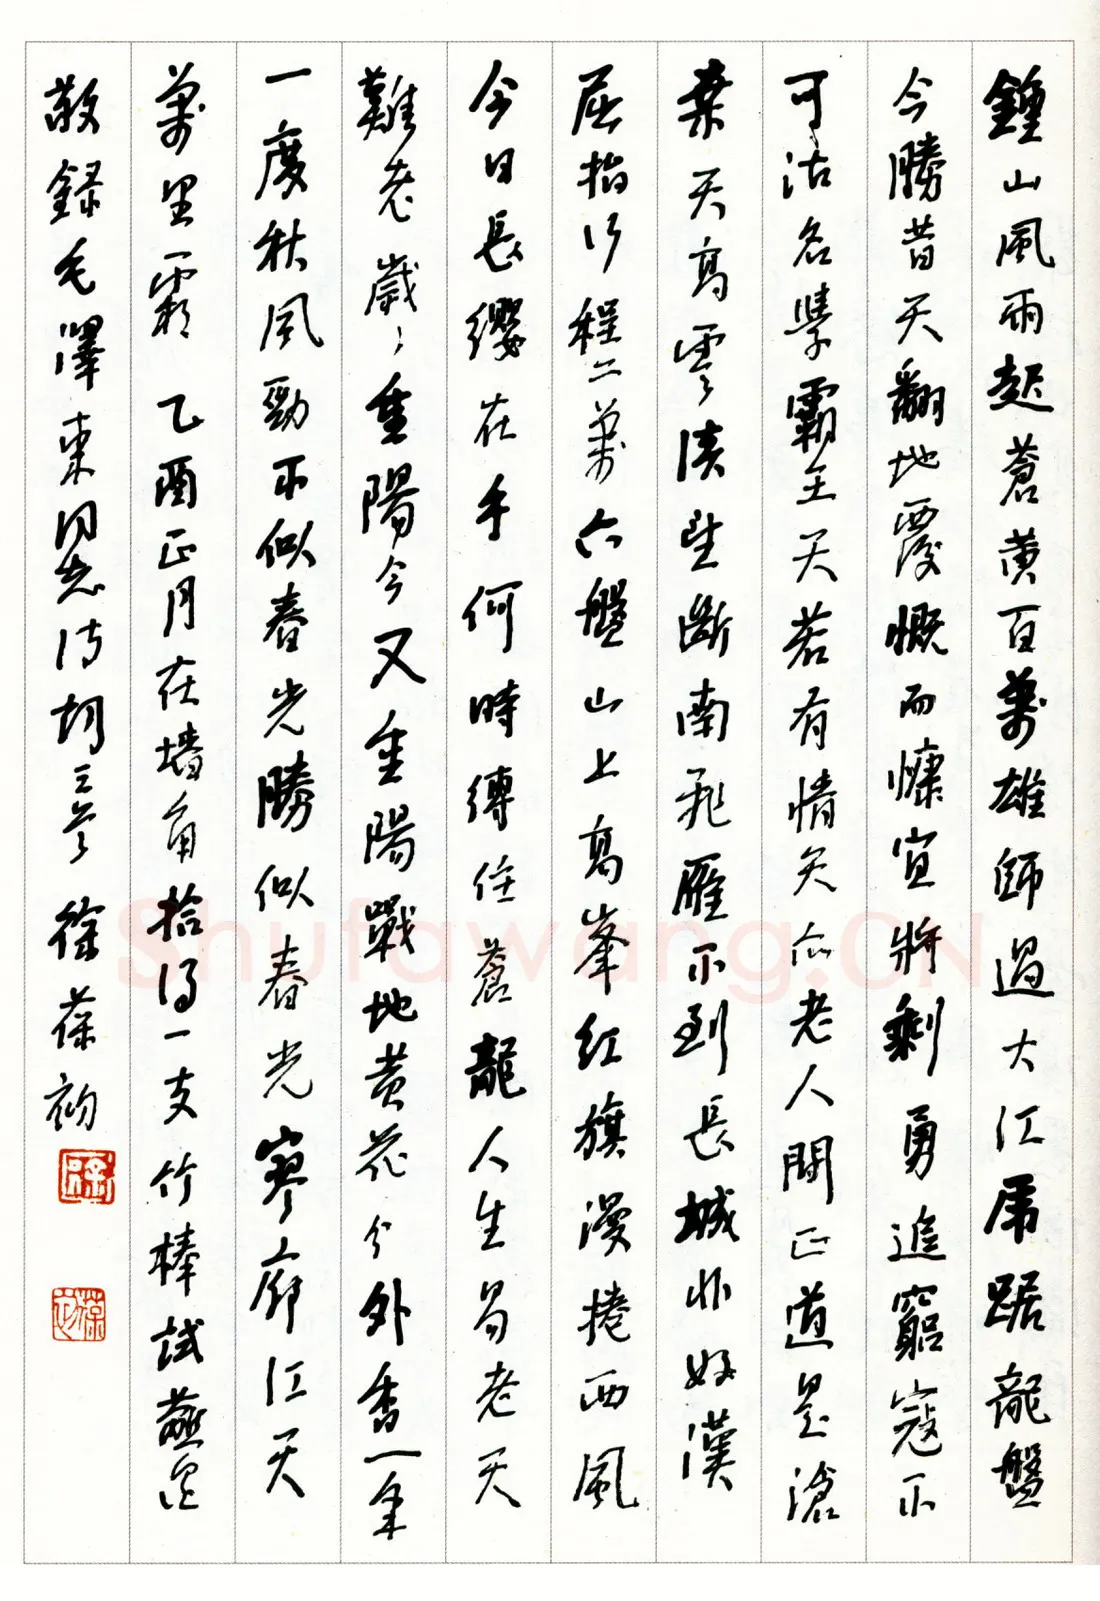 鍾山風雨起蒼黄百萬雄師過大江虎踞龍盤
今勝昔天翻地覆慨而慷宜將剩勇追窮寇不
可沽名學霸王天若有情天亦老人間正道是滄
桑天高雲淡望斷南飛雁不到長城非好漢
屈指行程二萬六盤山上高峯紅旗漫捲西風
今日長纓在手何時縛住蒼龍人生易老天
難老歲歲重陽今又重陽戰地黄花分外香一年
一度秋風勁不似春光勝似春光寥廓江天
萬里霜乙酉正月在墙角拾得一支竹棒試蘸
敬録毛澤東同志詩詞三首徐葆
Shufawang.CN